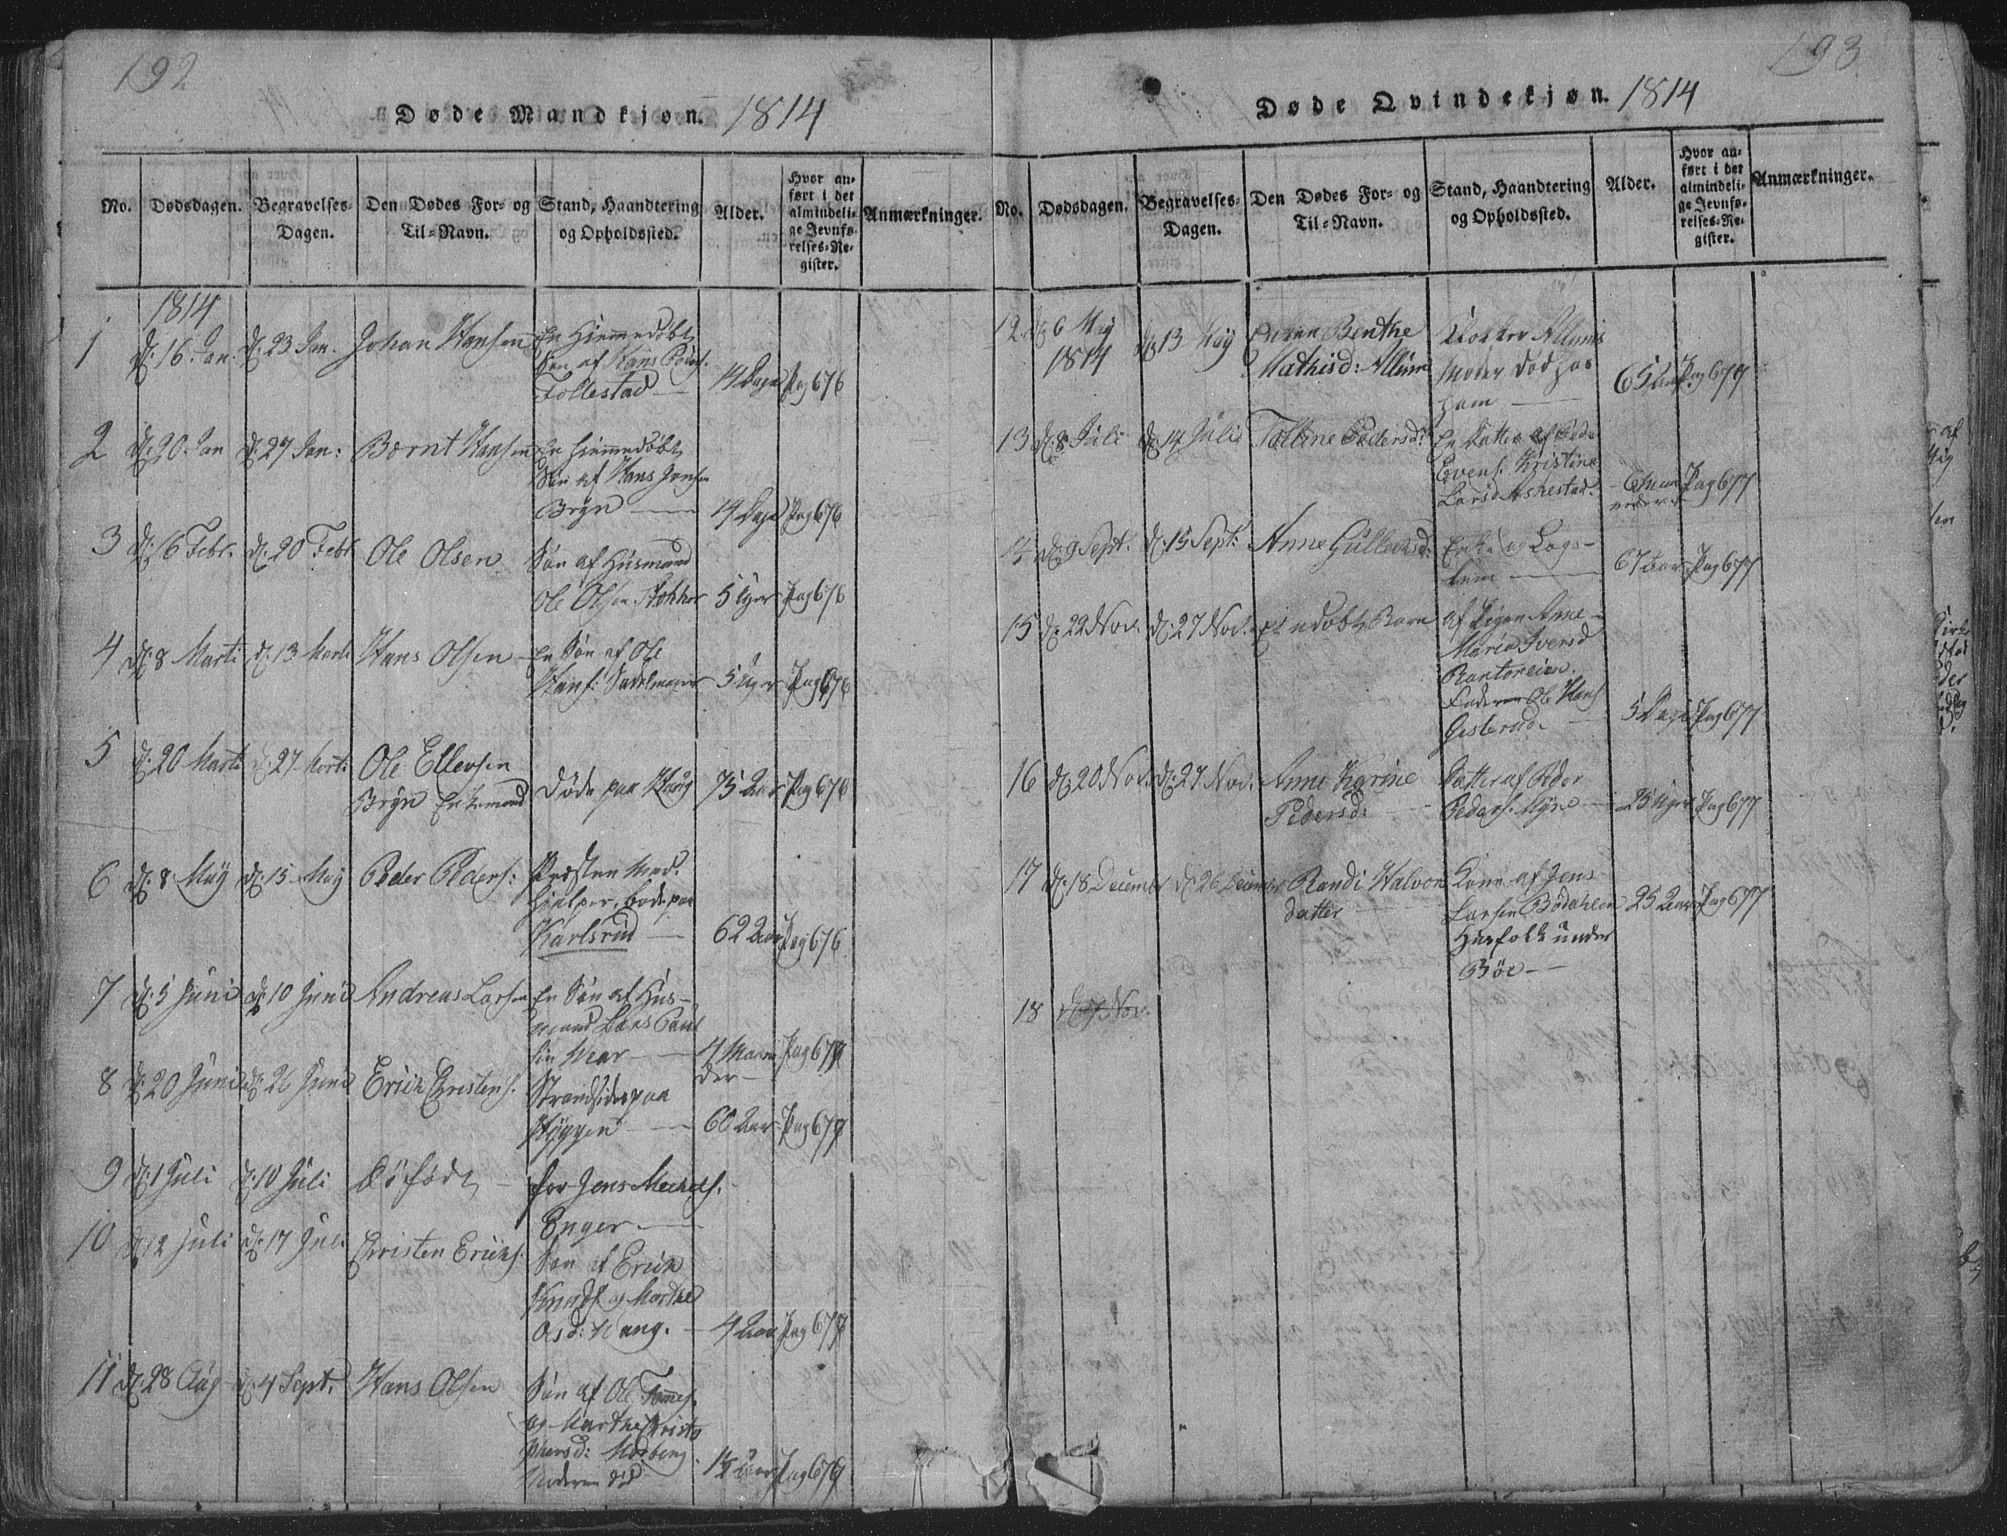 192
Døde Mandkjøn. 1814
No. Dødsdagen. Begravelses-Dagen. Den Dødes For- og Til-Navn. Stand, Haandtering og Opholdssted. Alder. Hvor anført i det almindelige Jevnførelses-Register. Anmærkninger.
1814
1 d: 16 Jan. d: 23 Jan. Johan Hansen En Hiemmedøbt
Søn af Hans
Follestad 14 Dage Pag 676
2 d: 20 Jan d: 27 Jan: Bernt Hansen En hiemmedøbt
Søn af Hans Jensen
Bryn 14 Dage Pag 676
3 d: 16 Febr. d: 20 Febr Ole Olsen Søn af Husmand
Ole Olsen Stokker 5 Uger Pag 676
4 d: 8 Marti d: 13 Marti Hans Olsen En Søn af Ole
Hans: Sadelmager 5 Uger Pag 676
5 d: 20 Marti d: 27 Marti Ole Ellevsen
Bryn Enkemand Døde paa Haug 75 Aar Pag 676
6 d: 8 May d: 15 May Peder Peders: Præsten Med-
hielper, bode paa
Karlsrud 62 Aar Pag 676
7 d: 5 Juni d: 10 Juni Andreas Larsen En Søn af Hus-
mand Lars Paul
sen 4 Maane
der Pag 677
8 d: 20 Juni d: 26 Juni Erich Christens. Strandsider paa
Høggen 60 Aar Pag 677
9 d: 1 Juli d: 10 Juli Døfødt for Jens Michels.
Enger
10 d: 12 Juli d: 17 Juli Christen Erichs. Søn af Erich
Knuds og Marthe
Osd: Haug. 4 Aar Pag 677
11 d: 28 Aug d: 4 Sept. Hans Olsen Søn af Ole
og Marthe Christo
phersd: Morberg
Moderen død 1½ Aar Pag 677
193
Døde Qvindekjøn. 1814
No. Dødsdagen. Begravelses-Dagen. Den Dødes For- og Til-Navn. Stand, Haandtering og Opholdssted. Alder. Hvor anført i det almindelige Jevnførelses-Register. Anmærkninger.
12 d: 6 May
1814 d: 13 May Benthe
Mathisd: Allum Klokker Allums
Moder død hos
ham 65 Aar Pag 677
13 d: 8 Juli d: 17 Julii Talline Pedersd: En Datter af Peder
Evens. Kristine
Larsd Askestad. 6 Maa
neder Pag 677
14 d: 9 Sept. d: 15 Sept: Anne Gulleichsd: Enke og Logs-
lem 67 Aar Pag 677
15 d: 22 Nov. d: 27 Nov. Et udøbt Barn af Pigen Anne
Maria Iversd
Rantoneien.
Faderen Ole Hans
Gislerud. 5 Dage Pag 677
16 d: 20 Nov. d: 27 Nov. Anne Karine
Pedersd: Datter af Peder
Peders. Myre 25 Uger Pag 677
17 d: 18 December d: 26 December Randi Halvors
datter Kone af Jens
Larsen Bødalen
Husfolk under
Bøe 25 Aar Pag 677
18 d: 7 Nov.